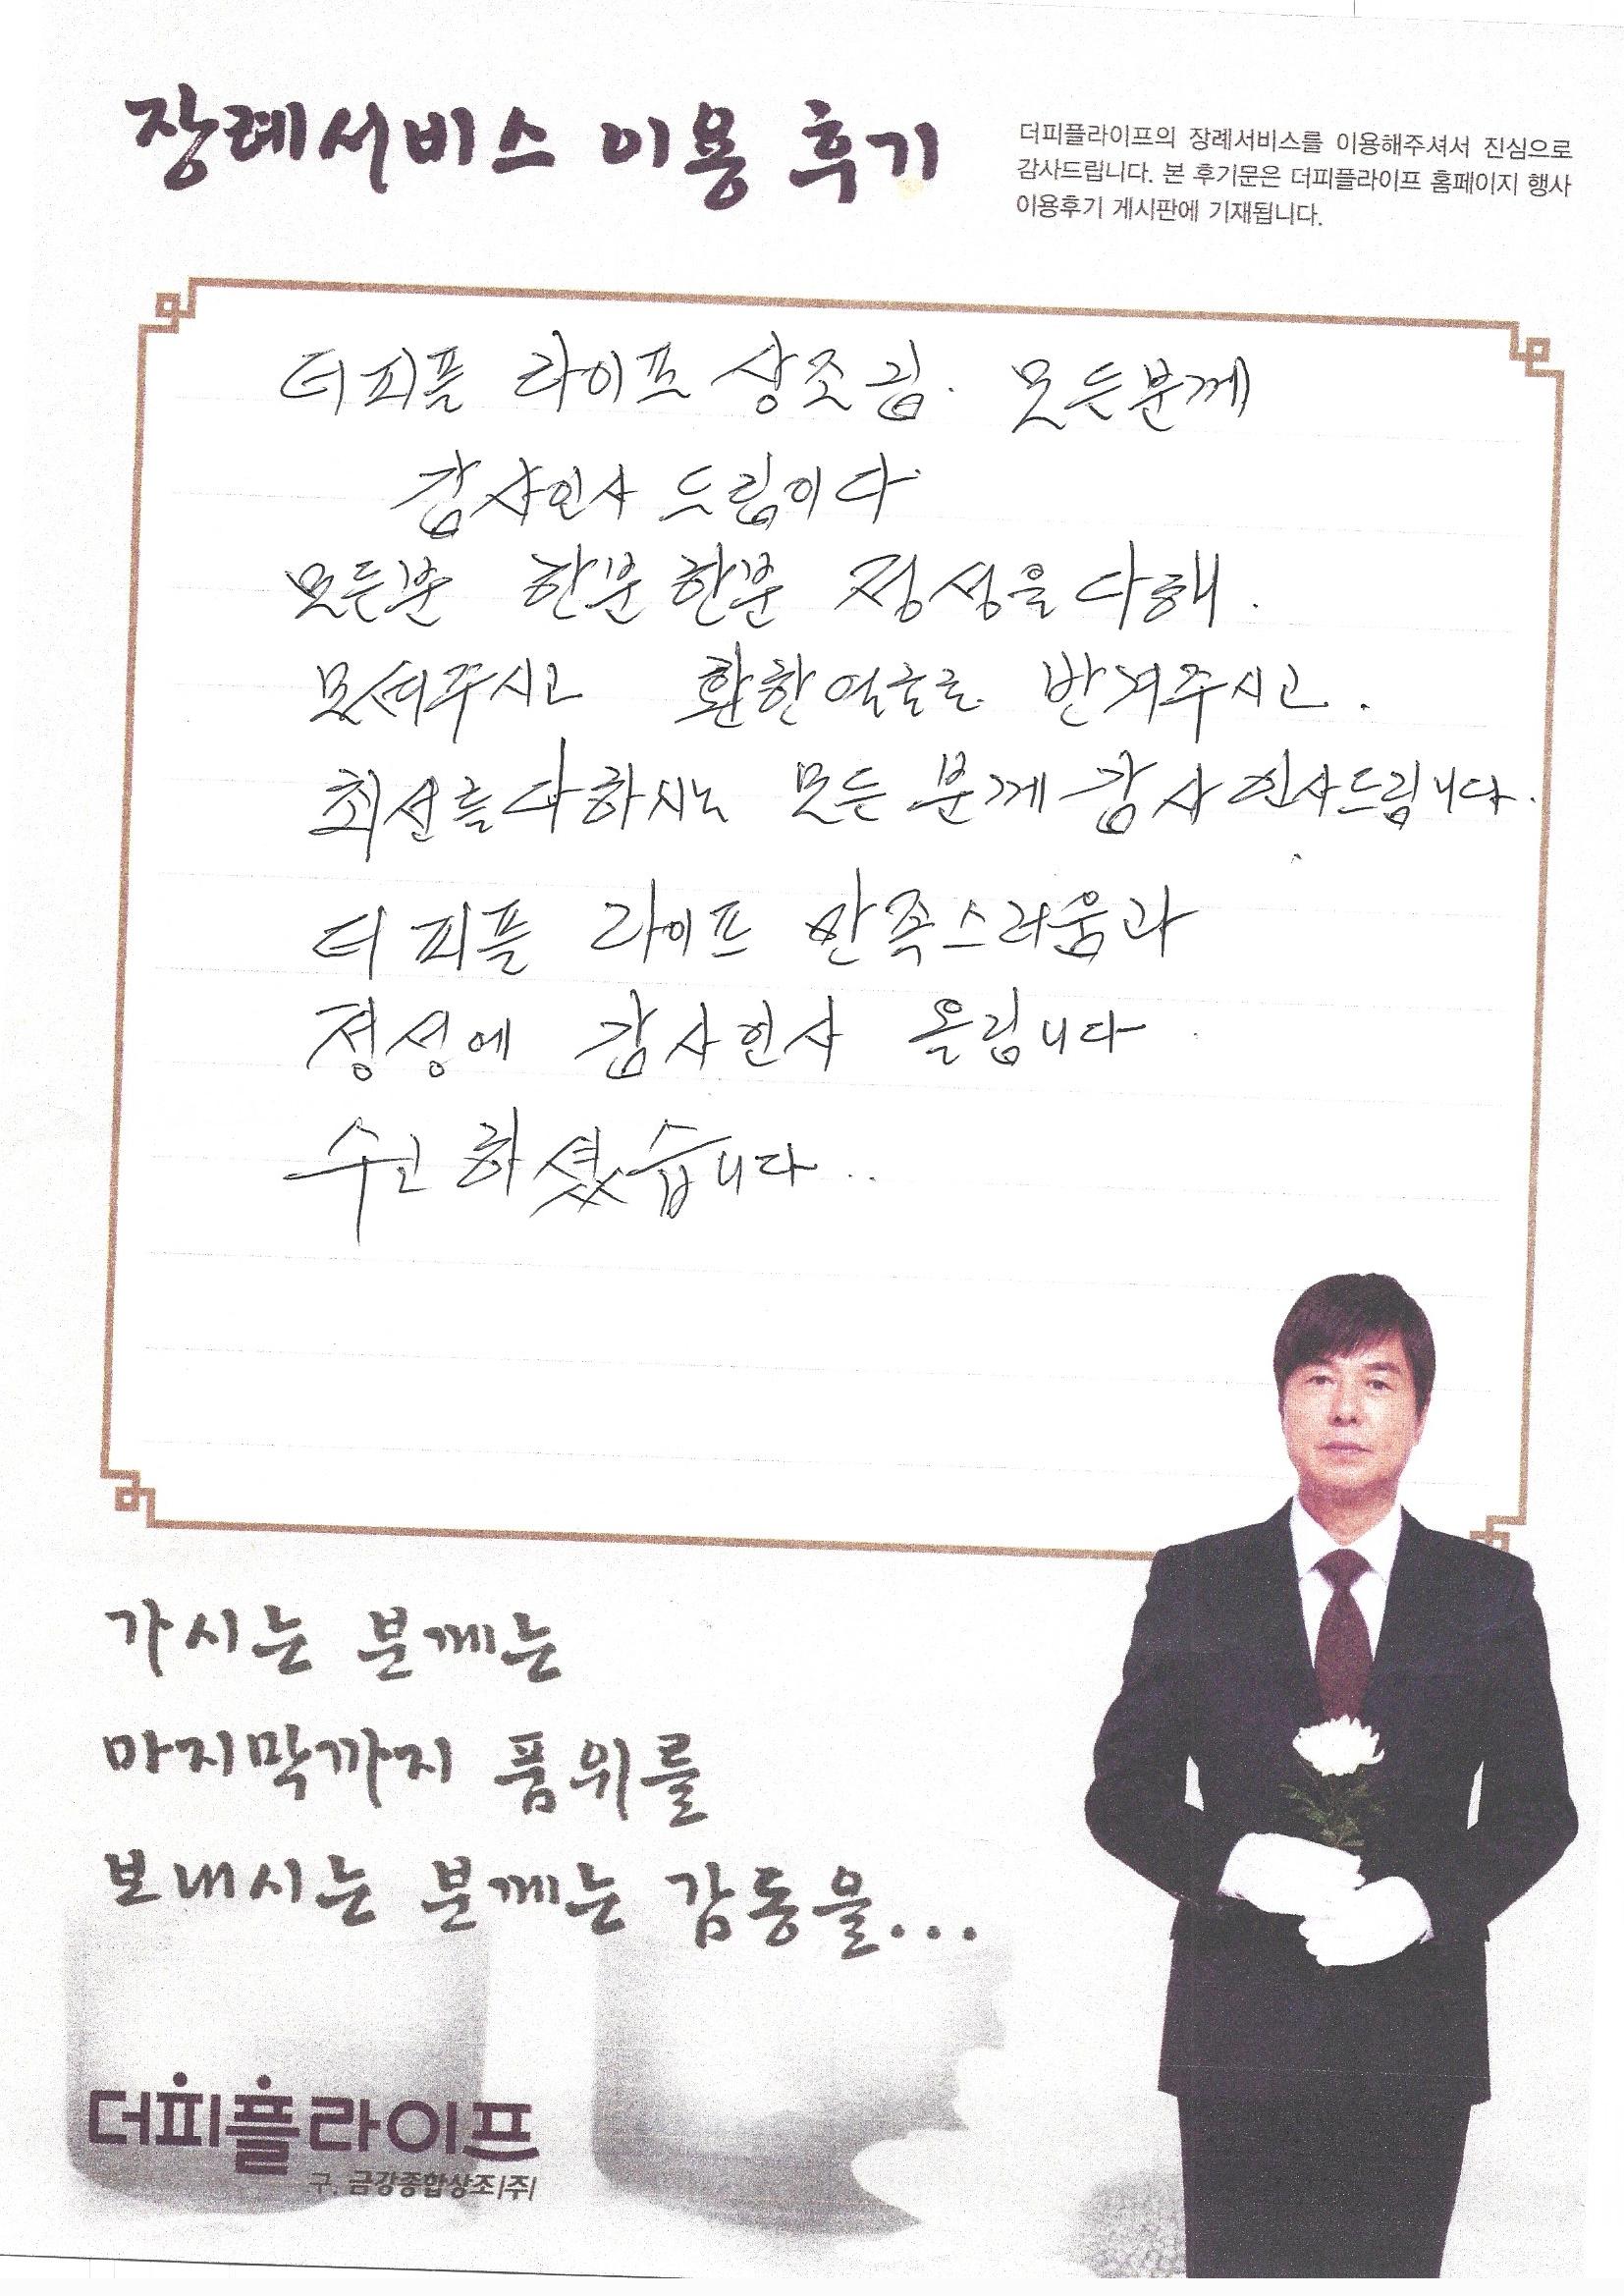 장례서비스 이용 후기
더피플라이프의 장례서비스를 이용해주셔서 진심으로
감사드립니다. 본 후기문은 더피플라이프 홈페이지 행사
이용후기 게시판에 기재됩니다.
더피플 라이프 상조님. 모든분께
감사인사 드림이다
모든분 한분한분 정성을다해.
모셔주시고 환한얼굴로 반겨주시고.
최선을다하시는 모든 분께 감사인사드립니다.
더피플 라이프 만족스러움과
정성에 감사인사 올립니다.
수고하셨습니다..
가시는 분께는
마지막까지 품위를
보내시는 분께는 감동을...
더피플라이프
구. 금강종합상조(주)